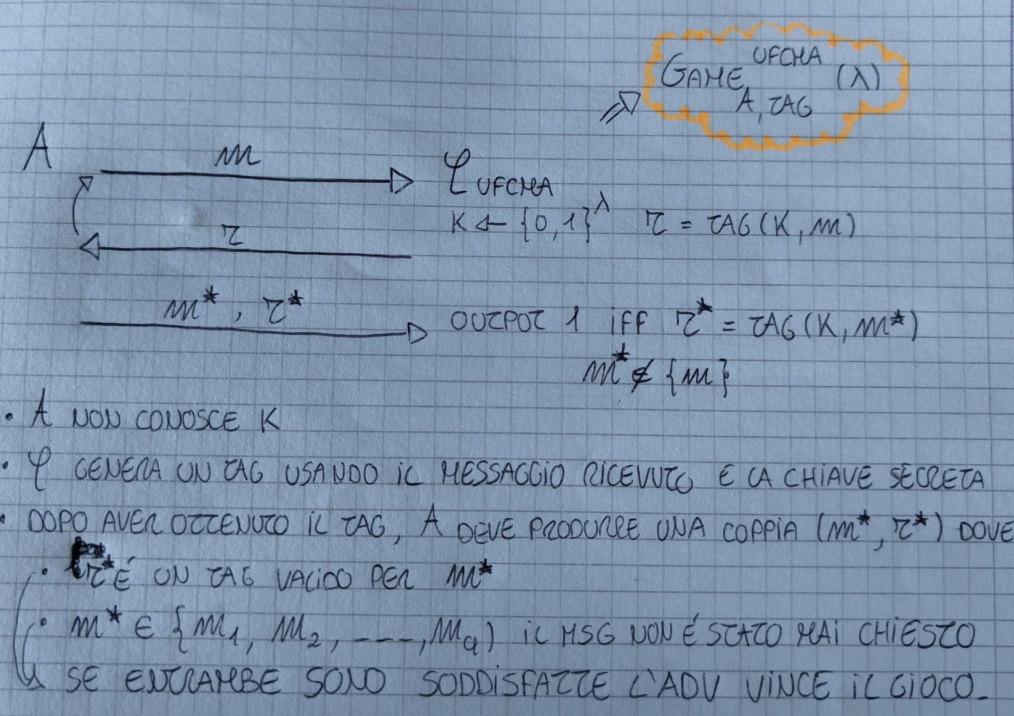 GAME^UFCMA_A,TAG (λ)
A m C UFCMA
K ← {0,1}^λ τ = TAG(K, m)
τ
m*, τ* OUTPUT 1 IFF τ* = TAG(K, m*)
m* ∉ {m}
• A NON CONOSCE K
• C GENERA UN TAG USANDO IL MESSAGGIO RICEVUTO E LA CHIAVE SEGRETA
• DOPO AVER OTTENUTO IL TAG, A DEVE PRODURRE UNA COPPIA (m*, τ*) DOVE
• τ* É UN TAG VALIDO PER m*
• m* ∈ {m1, m2, ----, mq) IL MSG NON É STATO MAI CHIESTO
SE ENTRAMBE SONO SODDISFATTE L'ADV VINCE IL GIOCO.